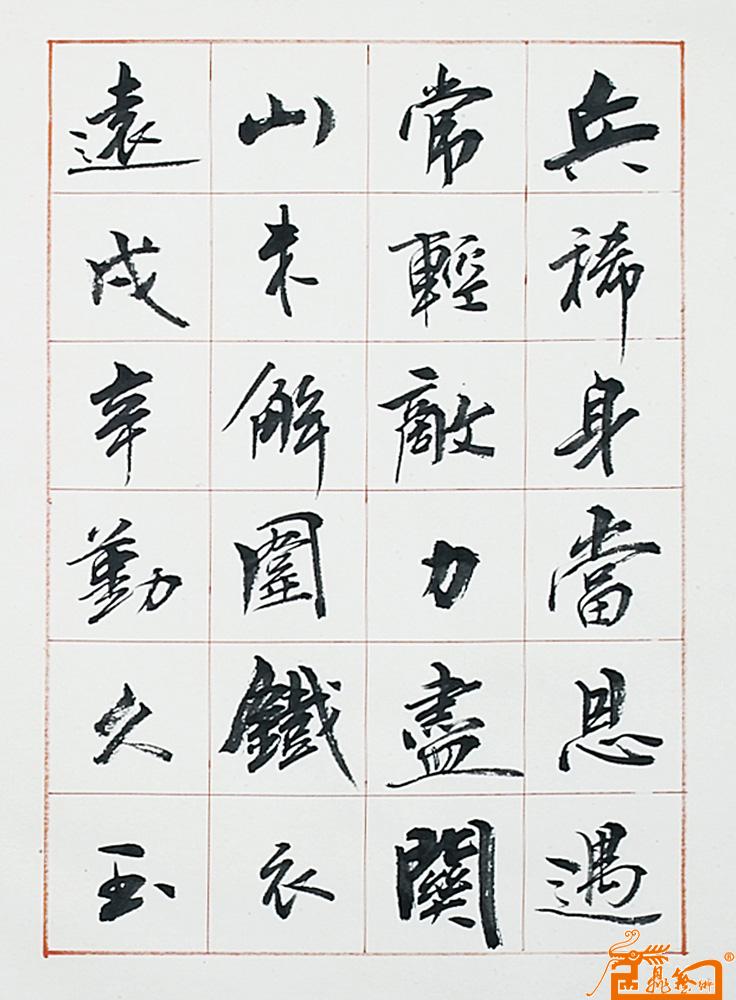 兵稀身當恩遇
常輕敵力盡關
山未解圍鐵衣
遠戍辛勤久玉